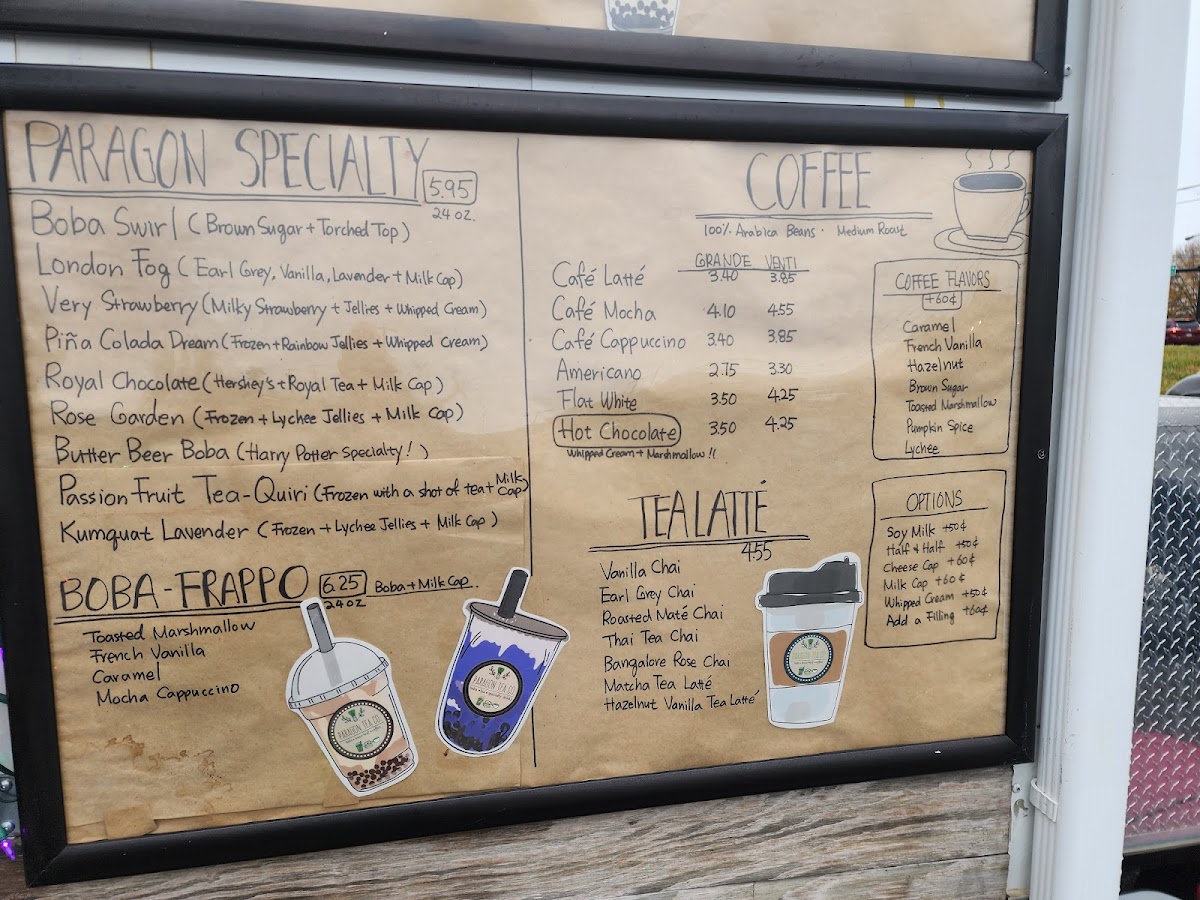 PARAGON SPECIALTY 5.95
24 oz.
Boba Swirl (Brown Sugar + Torched Top)
London Fog (Earl Grey, Vanilla, Lavender + Milk Cap)
Very Strawberry (Milky Strawberry + Jellies + Whipped Cream)
Piña Colada Dream (Frozen + Rainbow Jellies + Whipped Cream)
Royal Chocolate (Hershey's + Royal Tea + Milk Cap)
Rose Garden (Frozen + Lychee Jellies + Milk Cap)
Butter Beer Boba (Harry Potter Specialty!)
Passion Fruit Tea-Quiri (Frozen with a shot of tea + Milk Cap)
Kumquat Lavender (Frozen + Lychee Jellies + Milk Cap)
BOBA-FRAPPO 6.25 Boba + Milk Cap
24 OZ
Toasted Marshmallow
French Vanilla
Caramel
Mocha Cappuccino
PARAGON TEA CO.
PARAGON TEA CO.
COFFEE
100% Arabica Beans · Medium Roast
GRANDE VENTI
Café Latté 3.40 3.85
Café Mocha 4.10 4.55
Café Cappuccino 3.40 3.85
Americano 2.75 3.30
Flat White 3.50 4.25
Hot Chocolate 3.50 4.25
Whipped Cream + Marshmallow !!
TEA LATTÉ
4.55
Vanilla Chai
Earl Grey Chai
Roasted Maté Chai
Thai Tea Chai
Bangalore Rose Chai
Matcha Tea Latté
Hazelnut Vanilla Tea Latté
PARAGON TEA CO.
COFFEE FLAVORS
+60¢
Caramel
French Vanilla
Hazelnut
Brown Sugar
Toasted Marshmallow
Pumpkin Spice
Lychee
OPTIONS
Soy Milk +50¢
Half & Half +50¢
Cheese Cap +60¢
Milk Cap +60¢
Whipped Cream +50¢
Add a Filling +60¢